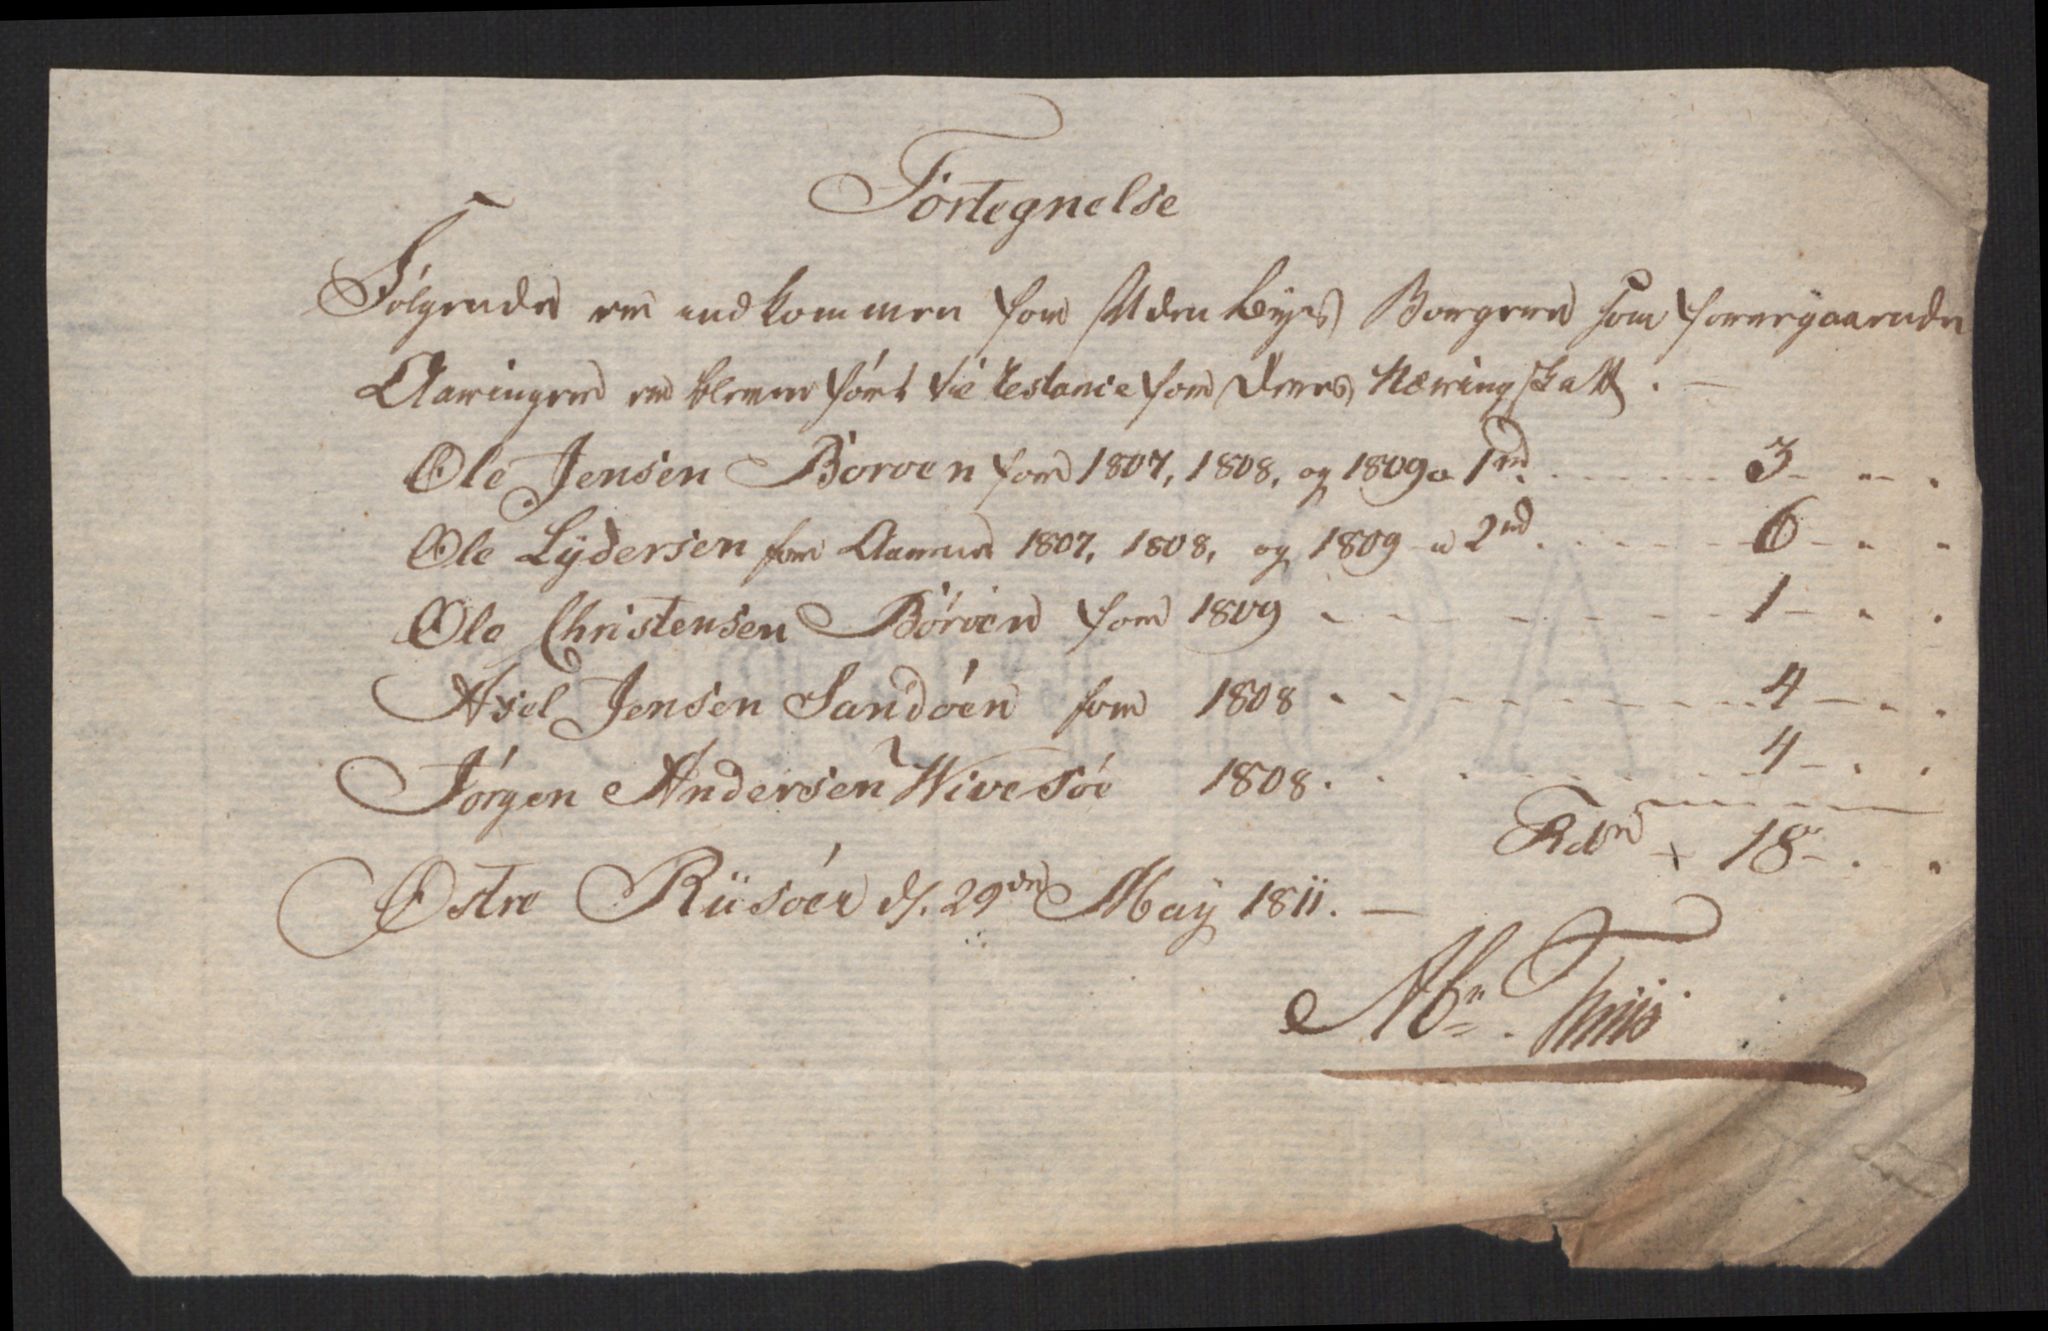 Fortegnelse
Følgende er indkommen for Udenbyes Borgere som foregaaende
Aaringer er bleven ført til Restance for deres Næringskatt. —
Ole Jensen Börøen for 1807, 1808, og 1809 a 1rd. 3 - " .
Ole Lÿdersen for Aarene 1807, 1808, og 1809 a 2rd. 6 - " "
Ole Christensen Börøen for 1809 1 - " .
Axel Jensen Sandöen for 1808 4 - " .
Jörgen Andersen Wivesöe 1808. 4 - . .
Rdr 18 - . "
Østre Riisöer d. 29de Maÿ 1811. —
Thiis